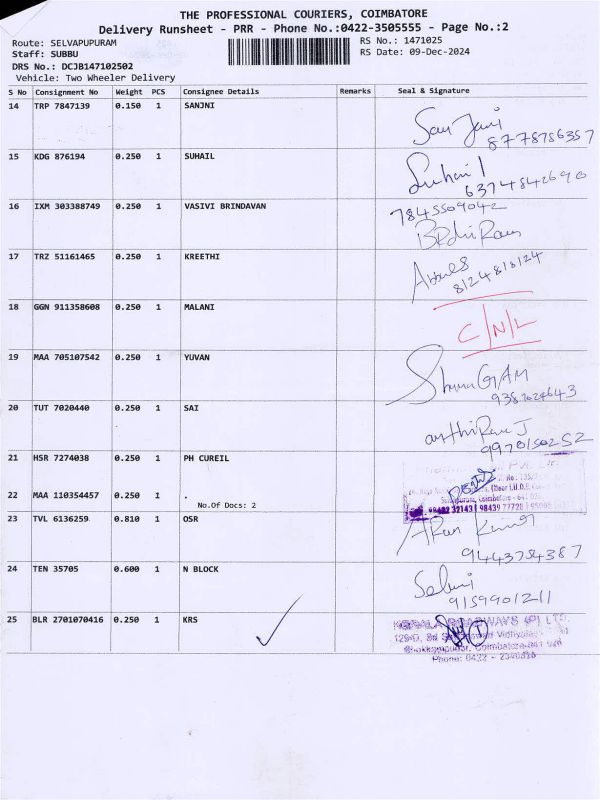 THE PROFESSIONAL COURIERS, COIMBATORE
Delivery Runsheet - PRR - Phone No.:0422-3505555 - Page No.:2
Route: SELVAPUPURAM
Staff: SUBBU
DRS No.: DCJB147102502
Vehicle: Two Wheeler Delivery
RS No.: 1471025
RS Date: 09-Dec-2024
S No Consignment No Weight PCS Consignee Details Remarks Seal & Signature
14 TRP 7847139 0.150 1 SANJNI
8778786357
15 KDG 876194 0.250 1 SUHAIL Suhail
6374842690
16 IXM 303388749 0.250 1 VASIVI BRINDAVAN 7845509042
17 TRZ 51161465 0.250 1 KREETHI
8124818124
18 GGN 911358608 0.250 1 MALANI C/N/L
19 MAA 705107542 0.250 1 YUVAN
20 TUT 7020440 0.250 1 SAI
9970150252
21 HSR 7274038 0.250 1 PH CUREIL
22 MAA 110354457 0.250 1 .
No.Of Docs: 2
23 TVL 6136259 0.810 1 OSR Arun Kumar
9443754387
24 TEN 35705 0.600 1 N BLOCK Selvi
9159901211
25 BLR 2701070416 0.250 1 KRS